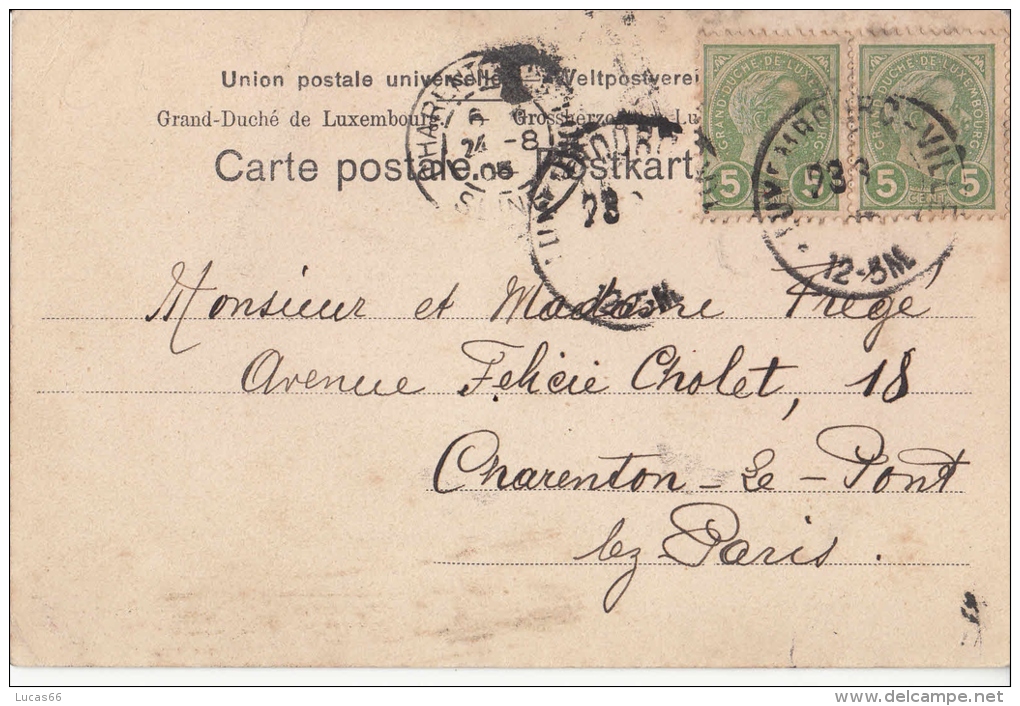 Union postale universelle — Weltpostverei
Grand-Duché de Luxembourg. — Grossherzo Lu
Carte postale. Postkart
GRAND-DUCHÉ-DE-LUXEMBOURG
5 5
CENT
GRAND-DUCHÉ-DE-LUXEMBOURG
5 5
CENT
24 -8
05
23
12-5M
LUXEMBOURG-VILLE
23 8
12-5M
Monsieur et Madame Fregé
Avenue Felicie Cholet, 18
Charenton-Le-Pont
lez Paris.
Lucas66
www.delcampe.net